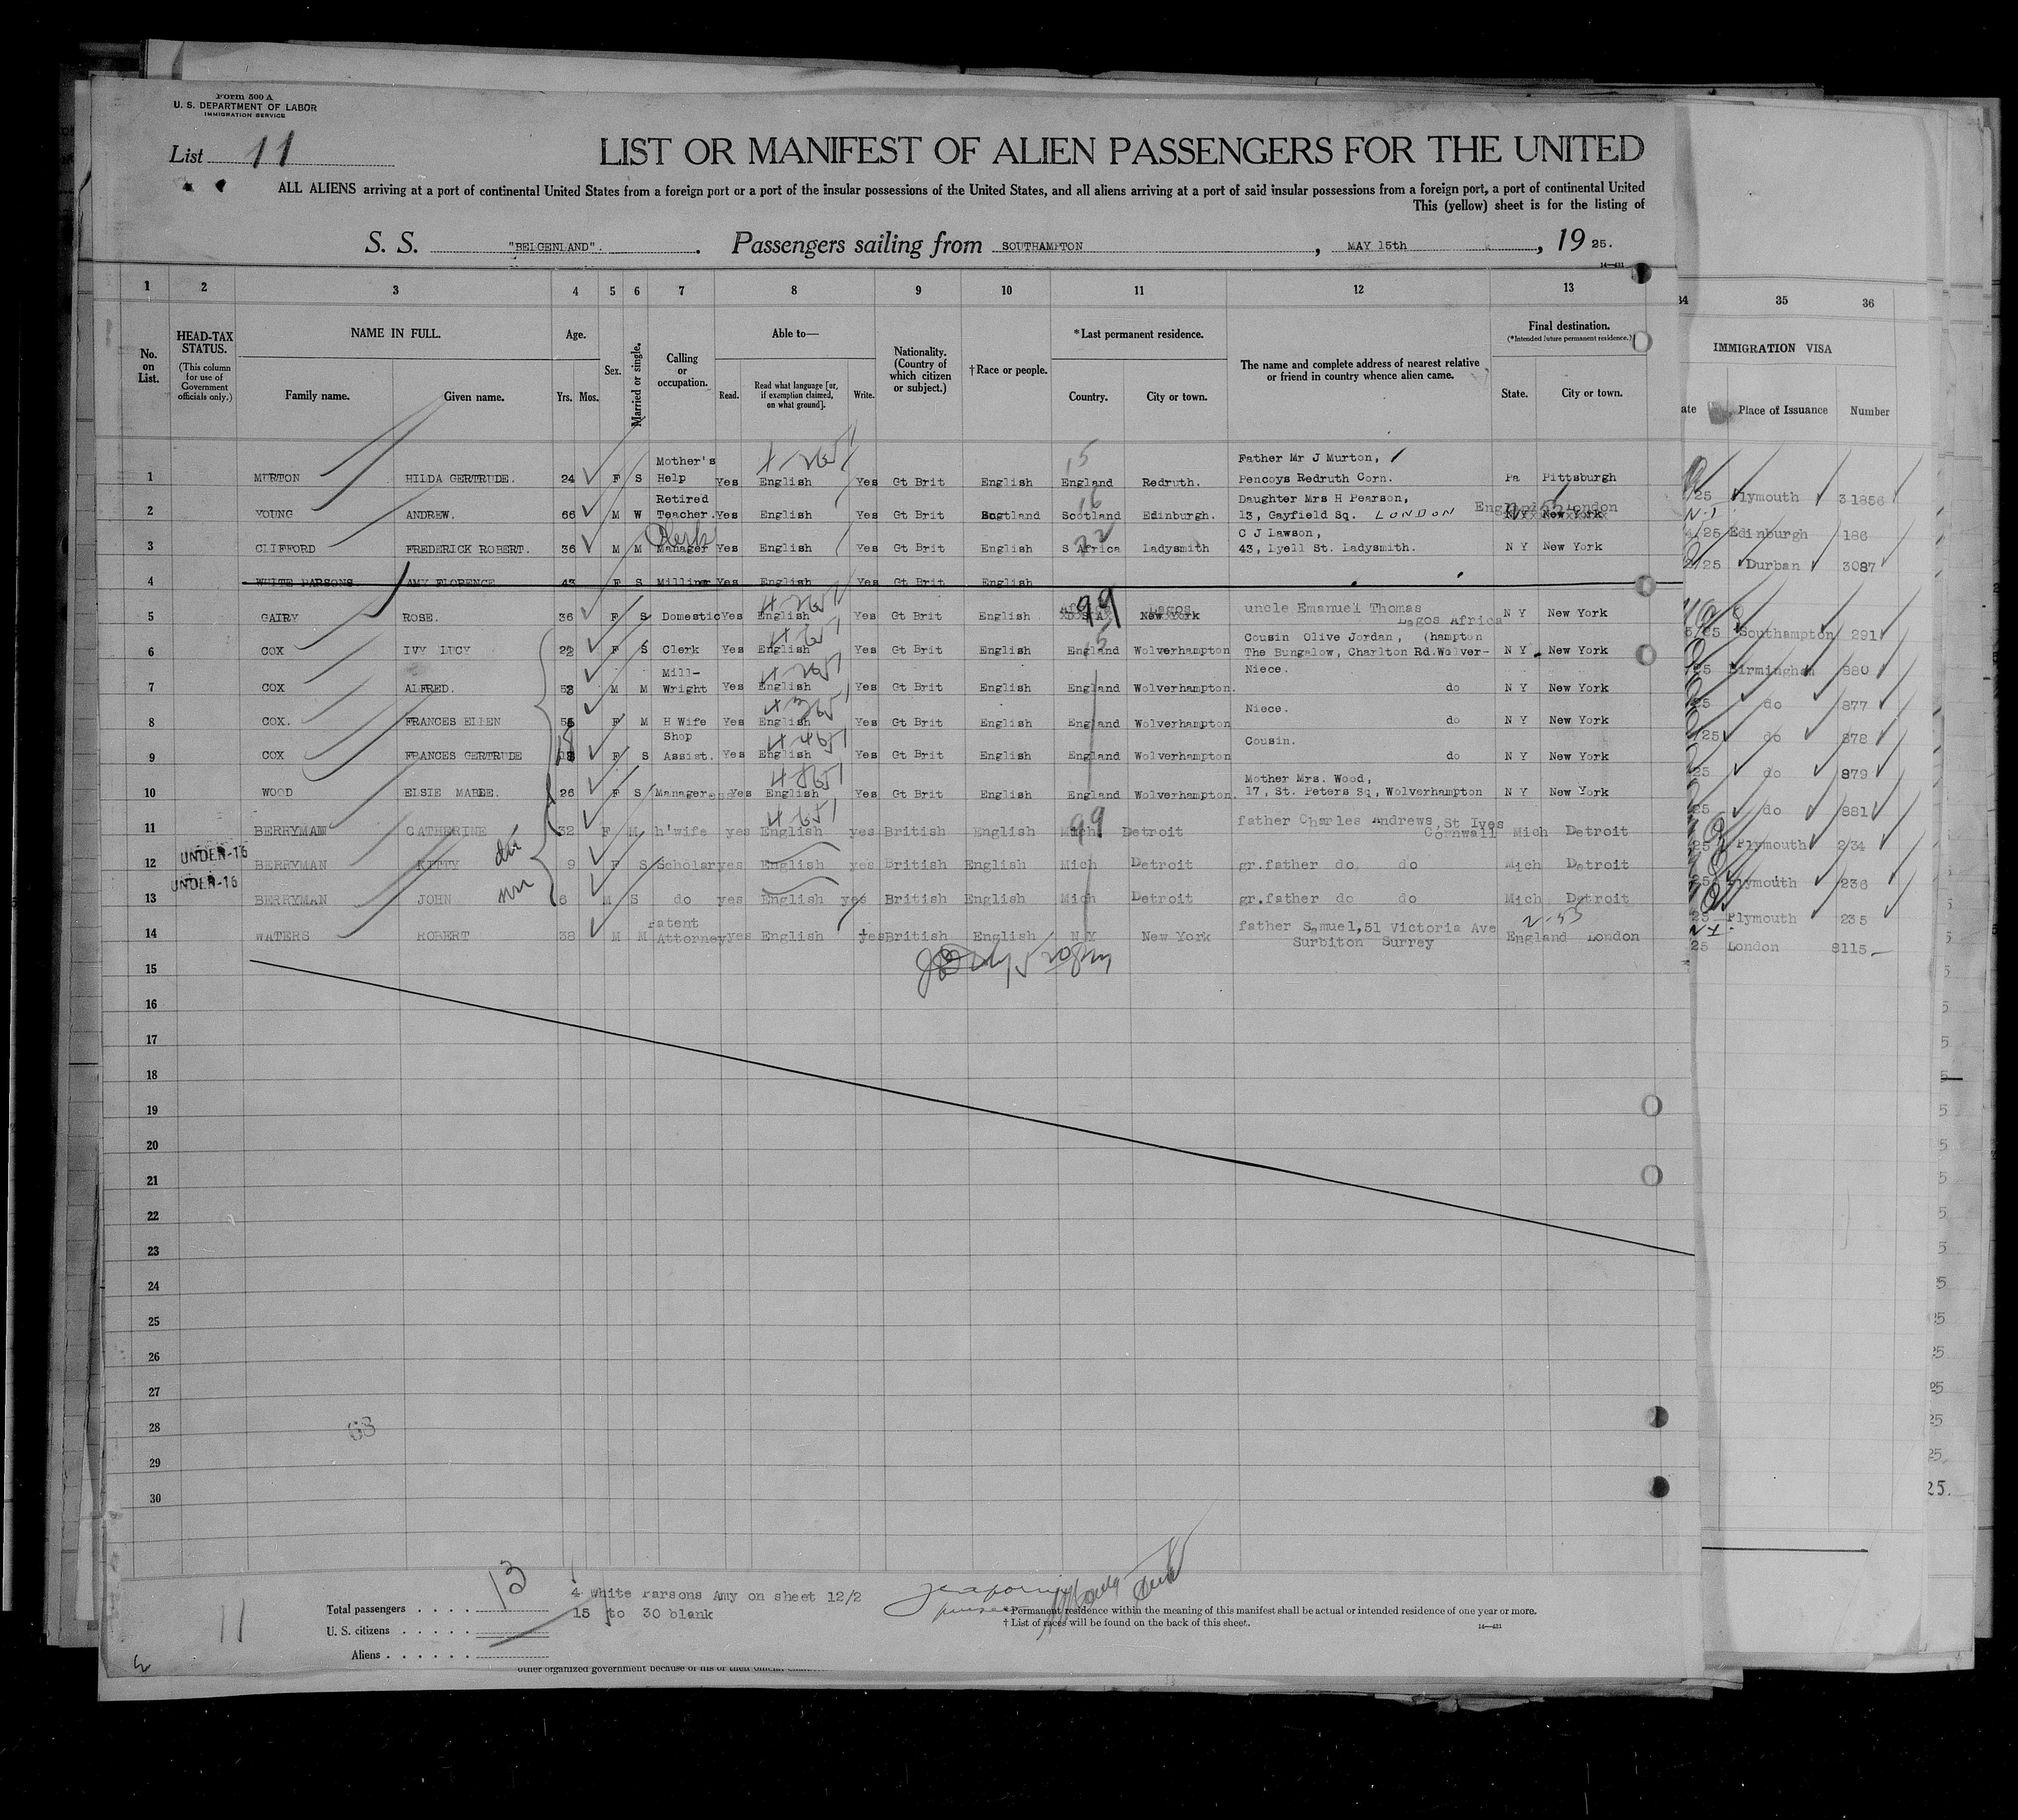 Form 500 A
U. S. DEPARTMENT OF LABOR
IMMIGRATION SERVICE
List 11
LIST OR MANIFEST OF ALIEN PASSENGERS FOR THE UNITED
ALL ALIENS arriving at a port of continental United States from a foreign port or a port of the insular possessions of the United States, and all aliens arriving at a port of said insular possessions from a foreign port, a port of continental United
This (yellow) sheet is for the listing of
S. S. "BELGENLAND". Passengers sailing from SOUTHAMPTON, MAY 15th, 1925.
14—431
1 2 3 4 5 6 7 8 9 10 11 12 13 34 35 36
No. on List.
HEAD-TAX STATUS.
(This column for use of Government officials only.)
NAME IN FULL.
Family name. Given name.
Age.
Yrs. Mos.
Sex.
Married or single.
Calling or occupation.
Able to—
Read. Read what language [or, if exemption claimed, on what ground]. Write.
Nationality. (Country of which citizen or subject.)
† Race or people.
*Last permanent residence.
Country. City or town.
The name and complete address of nearest relative or friend in country whence alien came.
Final destination.
(*Intended future permanent residence.)
State. City or town.
IMMIGRATION VISA
Place of Issuance Number
1 MURTON HILDA GERTRUDE. 24 F S Mother's Help Yes English Yes Gt Brit English England Redruth. Father Mr J Murton, Pencoys Redruth Corn. Pa Pittsburgh Plymouth 31856
2 YOUNG ANDREW. 66 M W Retired Teacher. Yes English Yes Gt Brit Scotland Scotland Edinburgh. Daughter Mrs H Pearson, 13, Gayfield Sq. LONDON England London N Y New York Edinburgh 186
3 CLIFFORD FREDERICK ROBERT. 36 M M Clerk Manager Yes English Yes Gt Brit English S Africa Ladysmith C J Lawson, 43, Lyell St. Ladysmith. N Y New York Durban 3087
4 WHITE PARSONS AMY FLORENCE 43 F S Milliner Yes English Yes Gt Brit English
5 GAIRY ROSE. 36 F S Domestic Yes English Yes Gt Brit English Africa Lagos New York uncle Emanuel Thomas Lagos Africa N Y New York Southampton 291
6 COX IVY LUCY 22 F S Clerk Yes English Yes Gt Brit English England Wolverhampton Cousin Olive Jordan, (hampton The Bungalow, Charlton Rd.Wolver- N Y New York Birmingham 880
7 COX ALFRED. M M Mill-Wright Yes English Yes Gt Brit English England Wolverhampton. Niece. do N Y New York do 877
8 COX. FRANCES ELLEN F M H Wife Yes English Yes Gt Brit English England Wolverhampton Niece. do N Y New York do 878
9 COX FRANCES GERTRUDE 18 F S Shop Assist. Yes English Yes Gt Brit English England Wolverhampton Cousin. do N Y New York do 879
10 WOOD ELSIE MABLE. 26 F S Manageress Yes English Yes Gt Brit English England Wolverhampton. Mother Mrs. Wood, 17, St. Peters Sq, Wolverhampton N Y New York do 881
11 BERRYMAN CATHERINE 32 F M h'wife yes English yes British English Mich Detroit father Charles Andrews, St Ives Cornwall Mich Detroit Plymouth 234
12 UNDER-16 BERRYMAN KITTY 9 F S Scholar yes English yes British English Mich Detroit gr.father do do Mich Detroit Plymouth 236
13 UNDER-16 BERRYMAN JOHN 6 M S do yes English yes British English Mich Detroit gr.father do do Mich Detroit Plymouth 235
14 WATERS ROBERT 38 M M Patent Attorney yes English yes British English N Y New York father Samuel, 51 Victoria Ave Surbiton Surrey England London London 8115
15
16
17
18
19
20
21
22
23
24
25
26
27
28
29
30
68
13
4 White Parsons Amy on sheet 12/2
15 to 30 blank
Total passengers
U. S. citizens
Aliens
11
* Permanent residence within the meaning of this manifest shall be actual or intended residence of one year or more.
† List of races will be found on the back of this sheet.
14—431